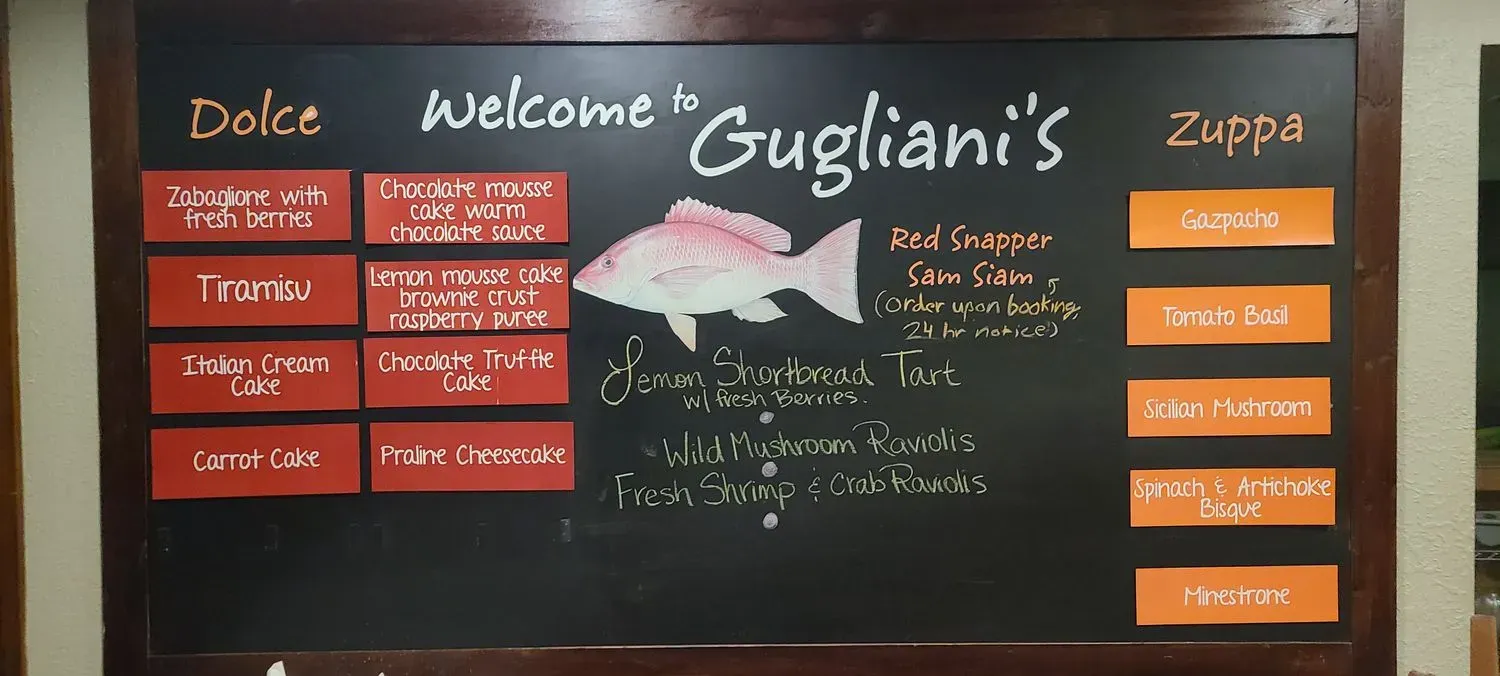 Welcome to
Gugliani's
Dolce
Zabaglione with
fresh berries
Tiramisu
Italian Cream
Cake
Carrot Cake
Chocolate mousse
cake warm
chocolate sauce
Lemon mousse cake
brownie crust
raspberry puree
Chocolate Truffle
Cake
Praline Cheesecake
Red Snapper
Sam Siam
(order upon booking,
24 hr notice)
Lemon Shortbread Tart
w/ fresh Berries.
Wild Mushroom Raviolis
Fresh Shrimp & Crab Raviolis
Zuppa
Gazpacho
Tomato Basil
Sicilian Mushroom
Spinach & Artichoke
Bisque
Minestrone